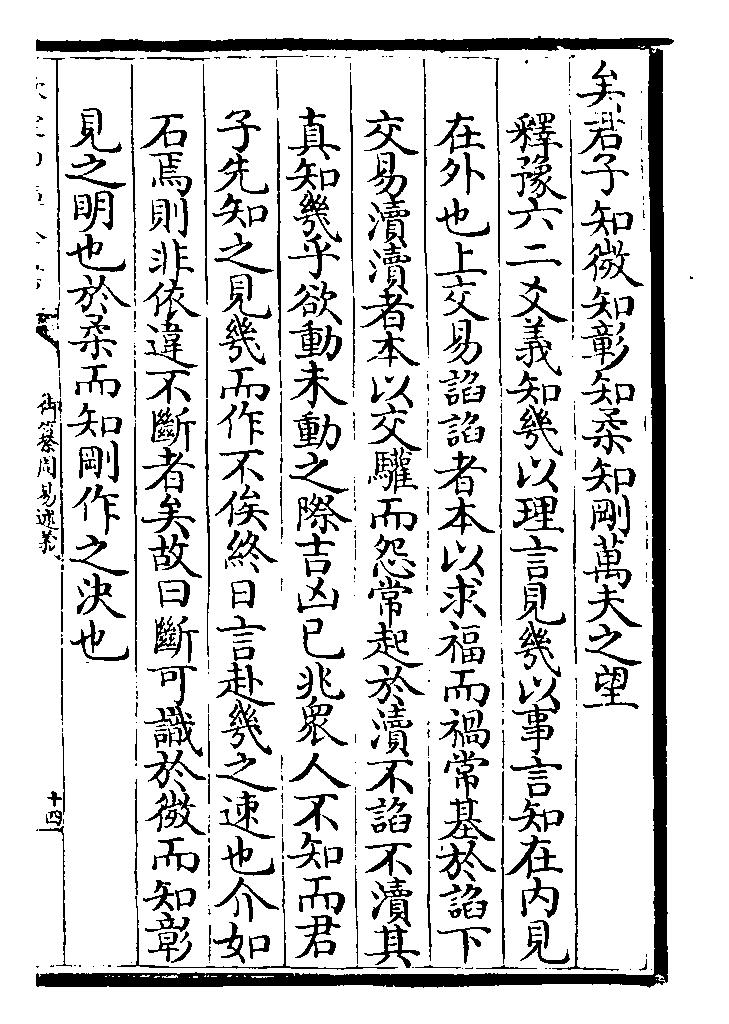 矣君子知微知彰知柔知剛萬夫之望
釋豫六二爻義知幾以理言見幾以事言知在内見
在外也上交易諂諂者本以求福而禍常基於諂下
交易瀆瀆者本以交驩而怨常起於瀆不諂不瀆其
真知幾乎欲動未動之際吉凶已兆衆人不知而君
子先知之見幾而作不俟終日言赴幾之速也介如
石焉則非依違不斷者矣故曰斷可識於微而知彰
見之明也於柔而知剛作之決也
御纂周易述義
十四